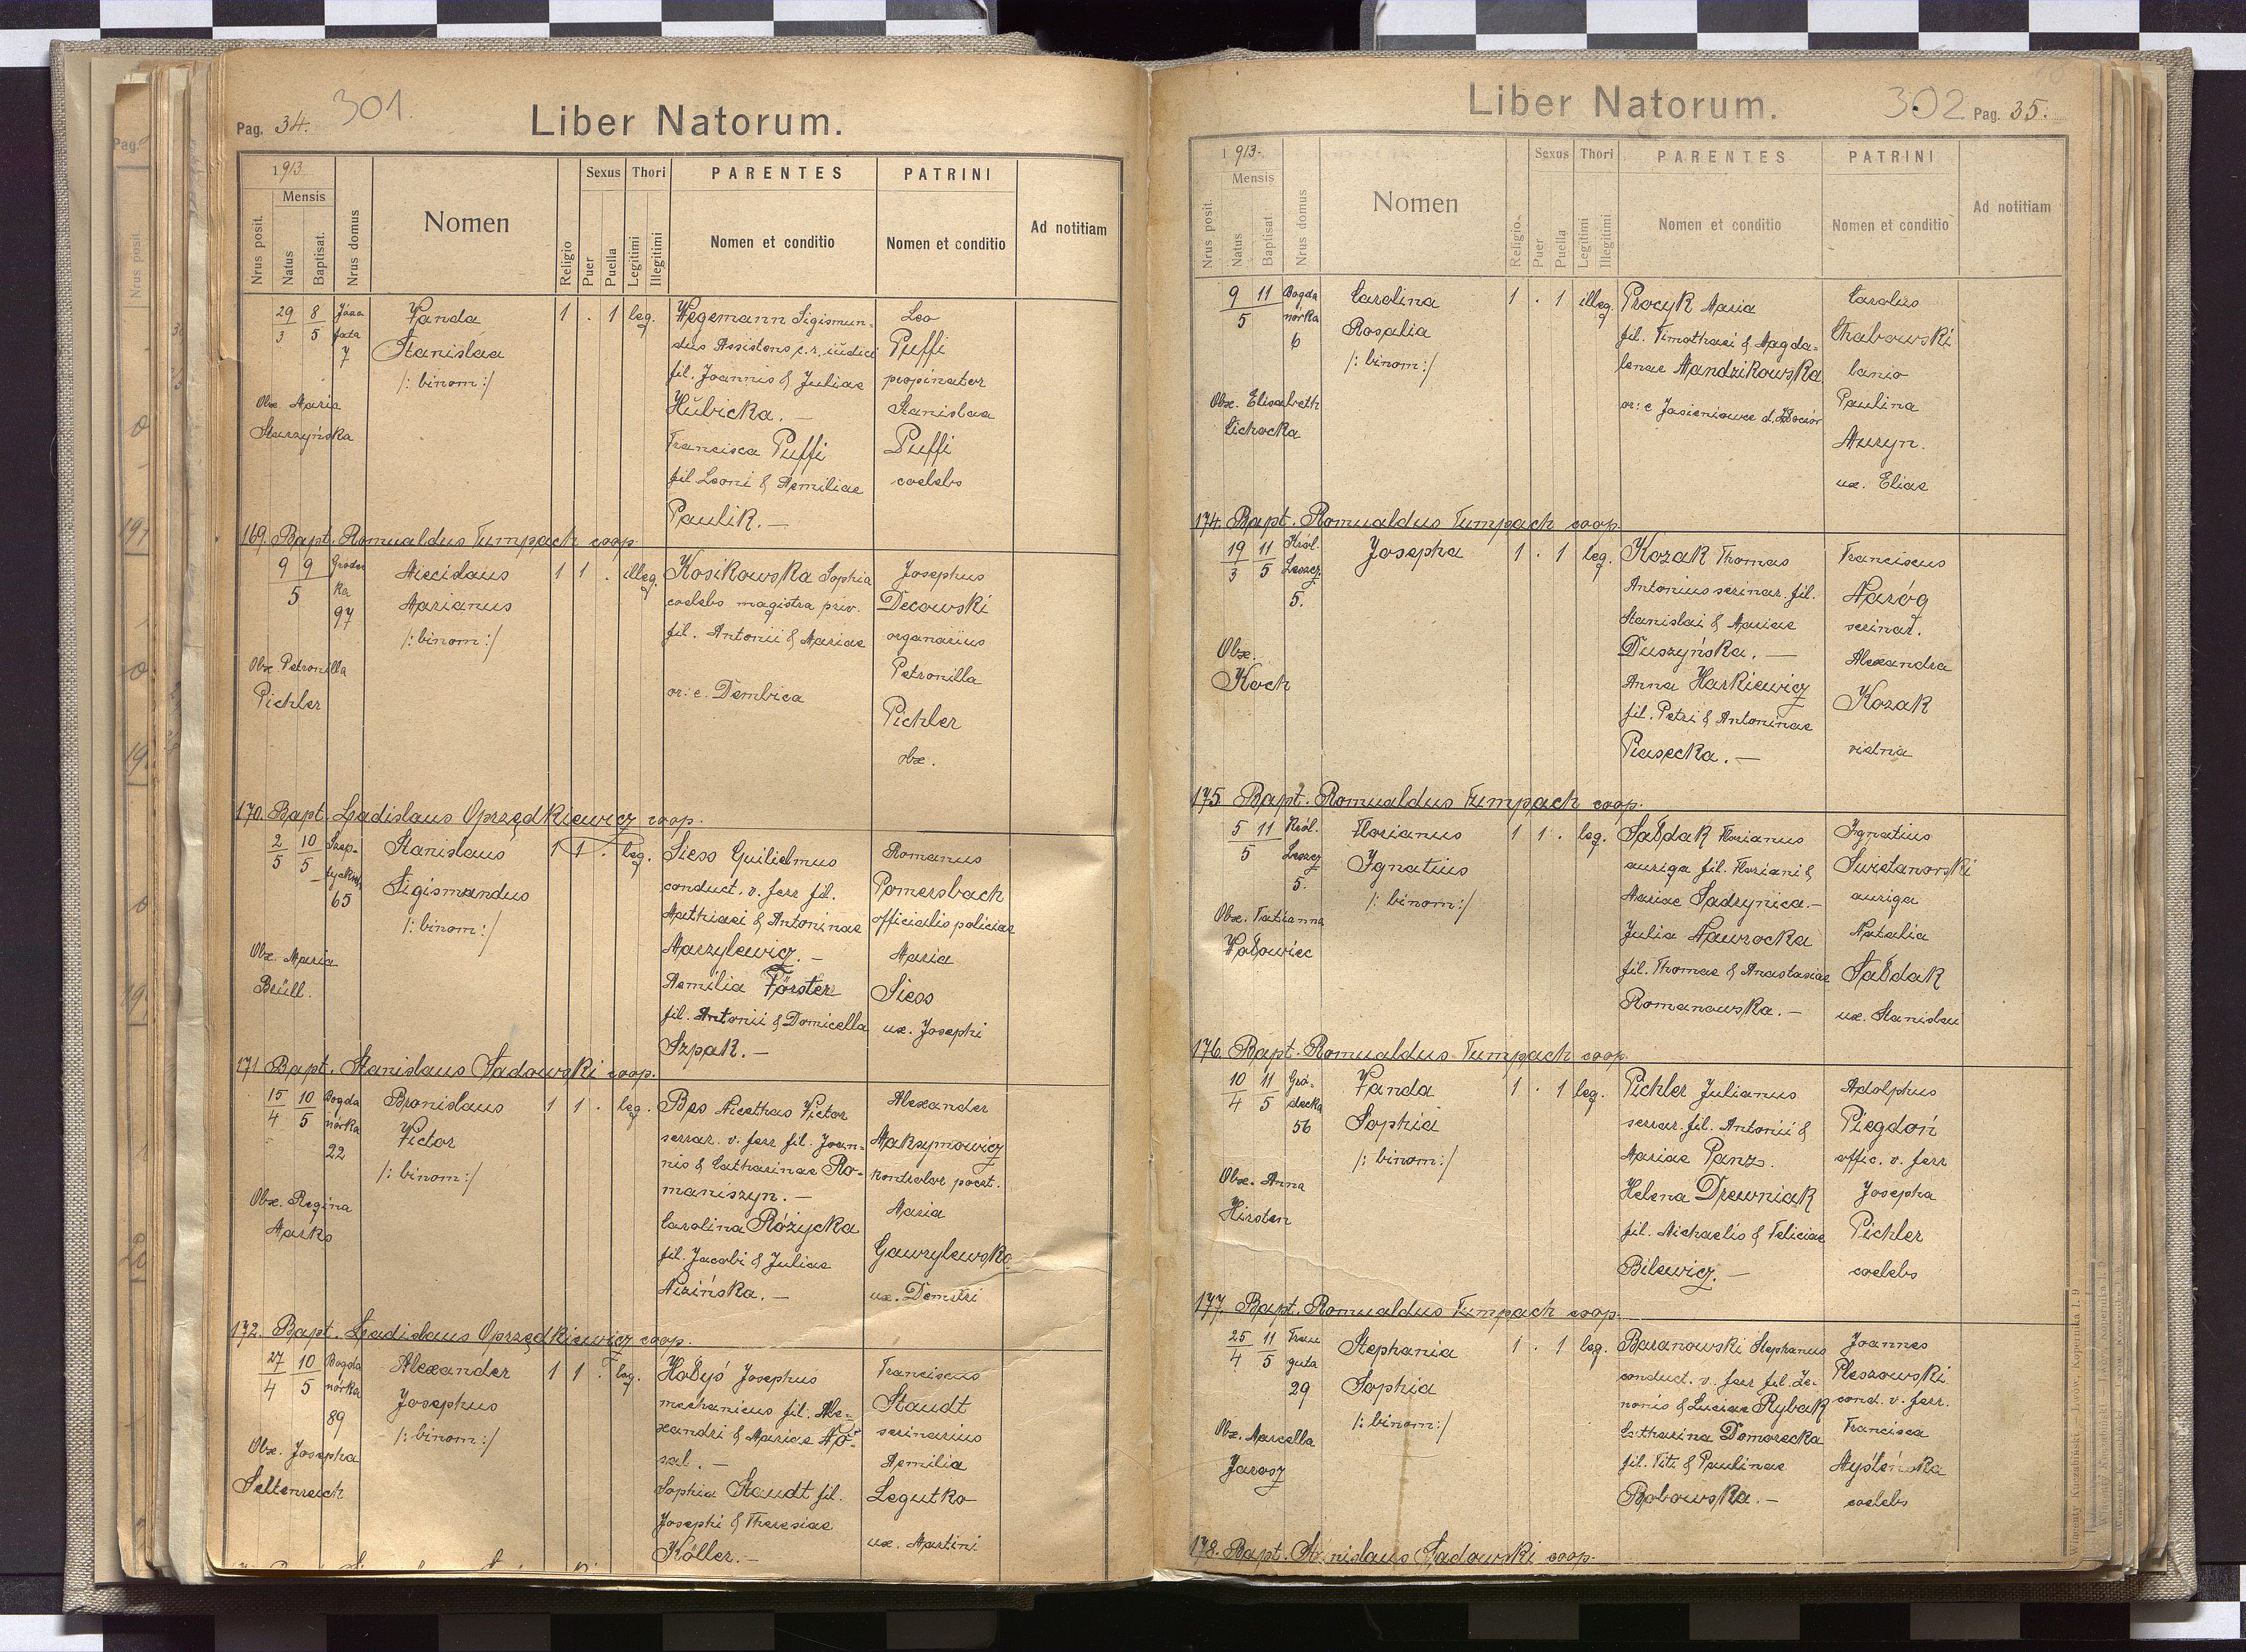 Pag. 34. 301.
Liber Natorum.
1913
Mensis
Nrus posit.
Natus
Baptisat.
Nrus domus
Nomen
Religio
Sexus
Puer
Puella
Thori
Legitimi
Illegitimi
PARENTES
Nomen et conditio
PATRINI
Nomen et conditio
Ad notitiam
29 8
3 5
7
Obx. Maria
Starzyńska
Vanda
Stanislaa
/: binom:/
1 . 1 leg.
Wegemann Sigismun-
dus Assistens c.r. iudici
fil. Joannis & Juliae
Hubicka. —
Francisca Puffi
fil Leoni & Aemiliae
Paulik. —
Leo
Puffi
propinator
Stanislaa
Puffi
coelebs
169. Bapt. Romualdus Tumpach coop.
9 9 Gródec
5 ka
97
Obx Petronilla
Pichler
Miecislaus
Marianus
/: binom:/
1 1 . illeg.
Kosikowska Sophia
coelebs magistra priv.
fil. Antonii & Mariae
or: e. Dembica
Josephus
Decowski
organarius
Petronilla
Pichler
obx.
170. Bapt. Ladislaus Oprzędkiewicz coop.
2 10 Szep-
5 5 tyckich
65
Obx Maria
Brüll.
Stanislaus
Sigismundus
/: binom:/
1 1 . leg.
Siess Guilielmus
conduct. v. ferr fil.
Mathiaei & Antoninae
Marzylewicz. —
Aemilia Förster
fil. Antonii & Domicella
Szpak. —
Romanus
Pomersbach
officialis policiae
Maria
Siess
ux. Josephi
171 Bapt. Stanislaus Sadowski coop.
15 10 Bogda
4 5 nórka
22
Obx. Regina
Marks
Bronislaus
Victor
/: binom:/
1 1 . leg.
Bes Nicethas Victor
serrar. v. ferr fil. Joan-
nis & Catharinae Ro-
maniszyn. —
Carolina Różycka
fil. Jacobi & Juliae
Nizińska. —
Alexander
Maksymowicz
kontrolor poczt.
Maria
Gawrylewska
ux. Demetri
172. Bapt. Ladislaus Oprzędkiewicz coop.
27 10 Bogda
4 5 nórka
89
Obx. Josepha
Seltenreich
Alexander
Josephus
/: binom:/
1 1 . leg.
Hołyś Josephus
mechanicus fil. Ale-
xandri & Mariae
Sophia Staudt fil.
Josephi & Theresiae
Köller. —
Franciscus
Staudt
scrinarius
Aemilia
Legutko
ux. Martini
Liber Natorum.
302 Pag. 35.
1913.
Mensis
Nrus posit.
Natus
Baptisat.
Nrus domus
Nomen
Religio
Sexus
Puer
Puella
Thori
Legitimi
Illegitimi
PARENTES
Nomen et conditio
PATRINI
Nomen et conditio
Ad notitiam
9 11 Bogda
5 nórka
6
Obx. Elisabeth
Cichocka
Carolina
Rosalia
/: binom:/
1 . 1 illeg.
Procyk Maria
fil. Timothaei & Magda-
lenae Mandzikowska
or: e Jasieniowce d. Złoczów
Carolus
Chabowski
lanio
Paulina
Muzyn.
ux. Eliae
174. Bapt. Romualdus Tumpach coop.
19 11 Król.
3 5 Leszcz.
5.
Obx.
Koch
Josepha
1 . 1 leg.
Kozak Thomas
Antonius scrinar. fil.
Stanislai & Mariae
Duszyńska. —
Anna Harkiewicz
fil. Petri & Antoninae
Piasecka. —
Franciscus
Naróg
scrinar.
Alexandra
Kozak
vidua
175 Bapt. Romualdus Tumpach coop.
5 11 Król.
5 Leszcz
5.
Obx. Tatianna
Wołowiec
Florianus
Ignatius
/: binom:/
1 1 . leg.
Sałdak Florianus
auriga fil. Floriani &
Mariae Sadrynica. —
Julia Nawrocka
fil. Thomae & Anastasiae
Romanowska. —
Ignatius
Swietanowski
auriga
Natalia
Sałdak
ux. Stanislai
176. Bapt. Romualdus Tumpach coop.
10 11 Gró-
4 5 decka
56
Obx. Anna
Hirsten
Vanda
Sophia
/: binom:/
1 . 1 leg.
Pichler Julianus
serrar. fil. Antonii &
Mariae Panz.
Helena Drewniak
fil. Michaelis & Feliciae
Bilewicz. —
Adolphus
Piegdoń
offic. v. ferr
Josepha
Pichler
coelebs
177. Bapt. Romualdus Tumpach coop.
25 11 Trau
4 5 guta
29
Obx. Marcella
Jarosz
Stephania
Sophia
/: binom:/
1 . 1 leg.
Baranowski Stephanus
conduct. v. ferr fil. Ze-
nonis & Luciae Rybak
Catharina Domarecka
fil. Titi & Paulinae
Bobowska. —
Joannes
Pleszowski
cond. v. ferr.
Francisca
Myślińska
coelebs
178. Bapt. Stanislaus Sadowski coop.
Wincenty Kuczabiński. Lwów, Kopernika l. 9